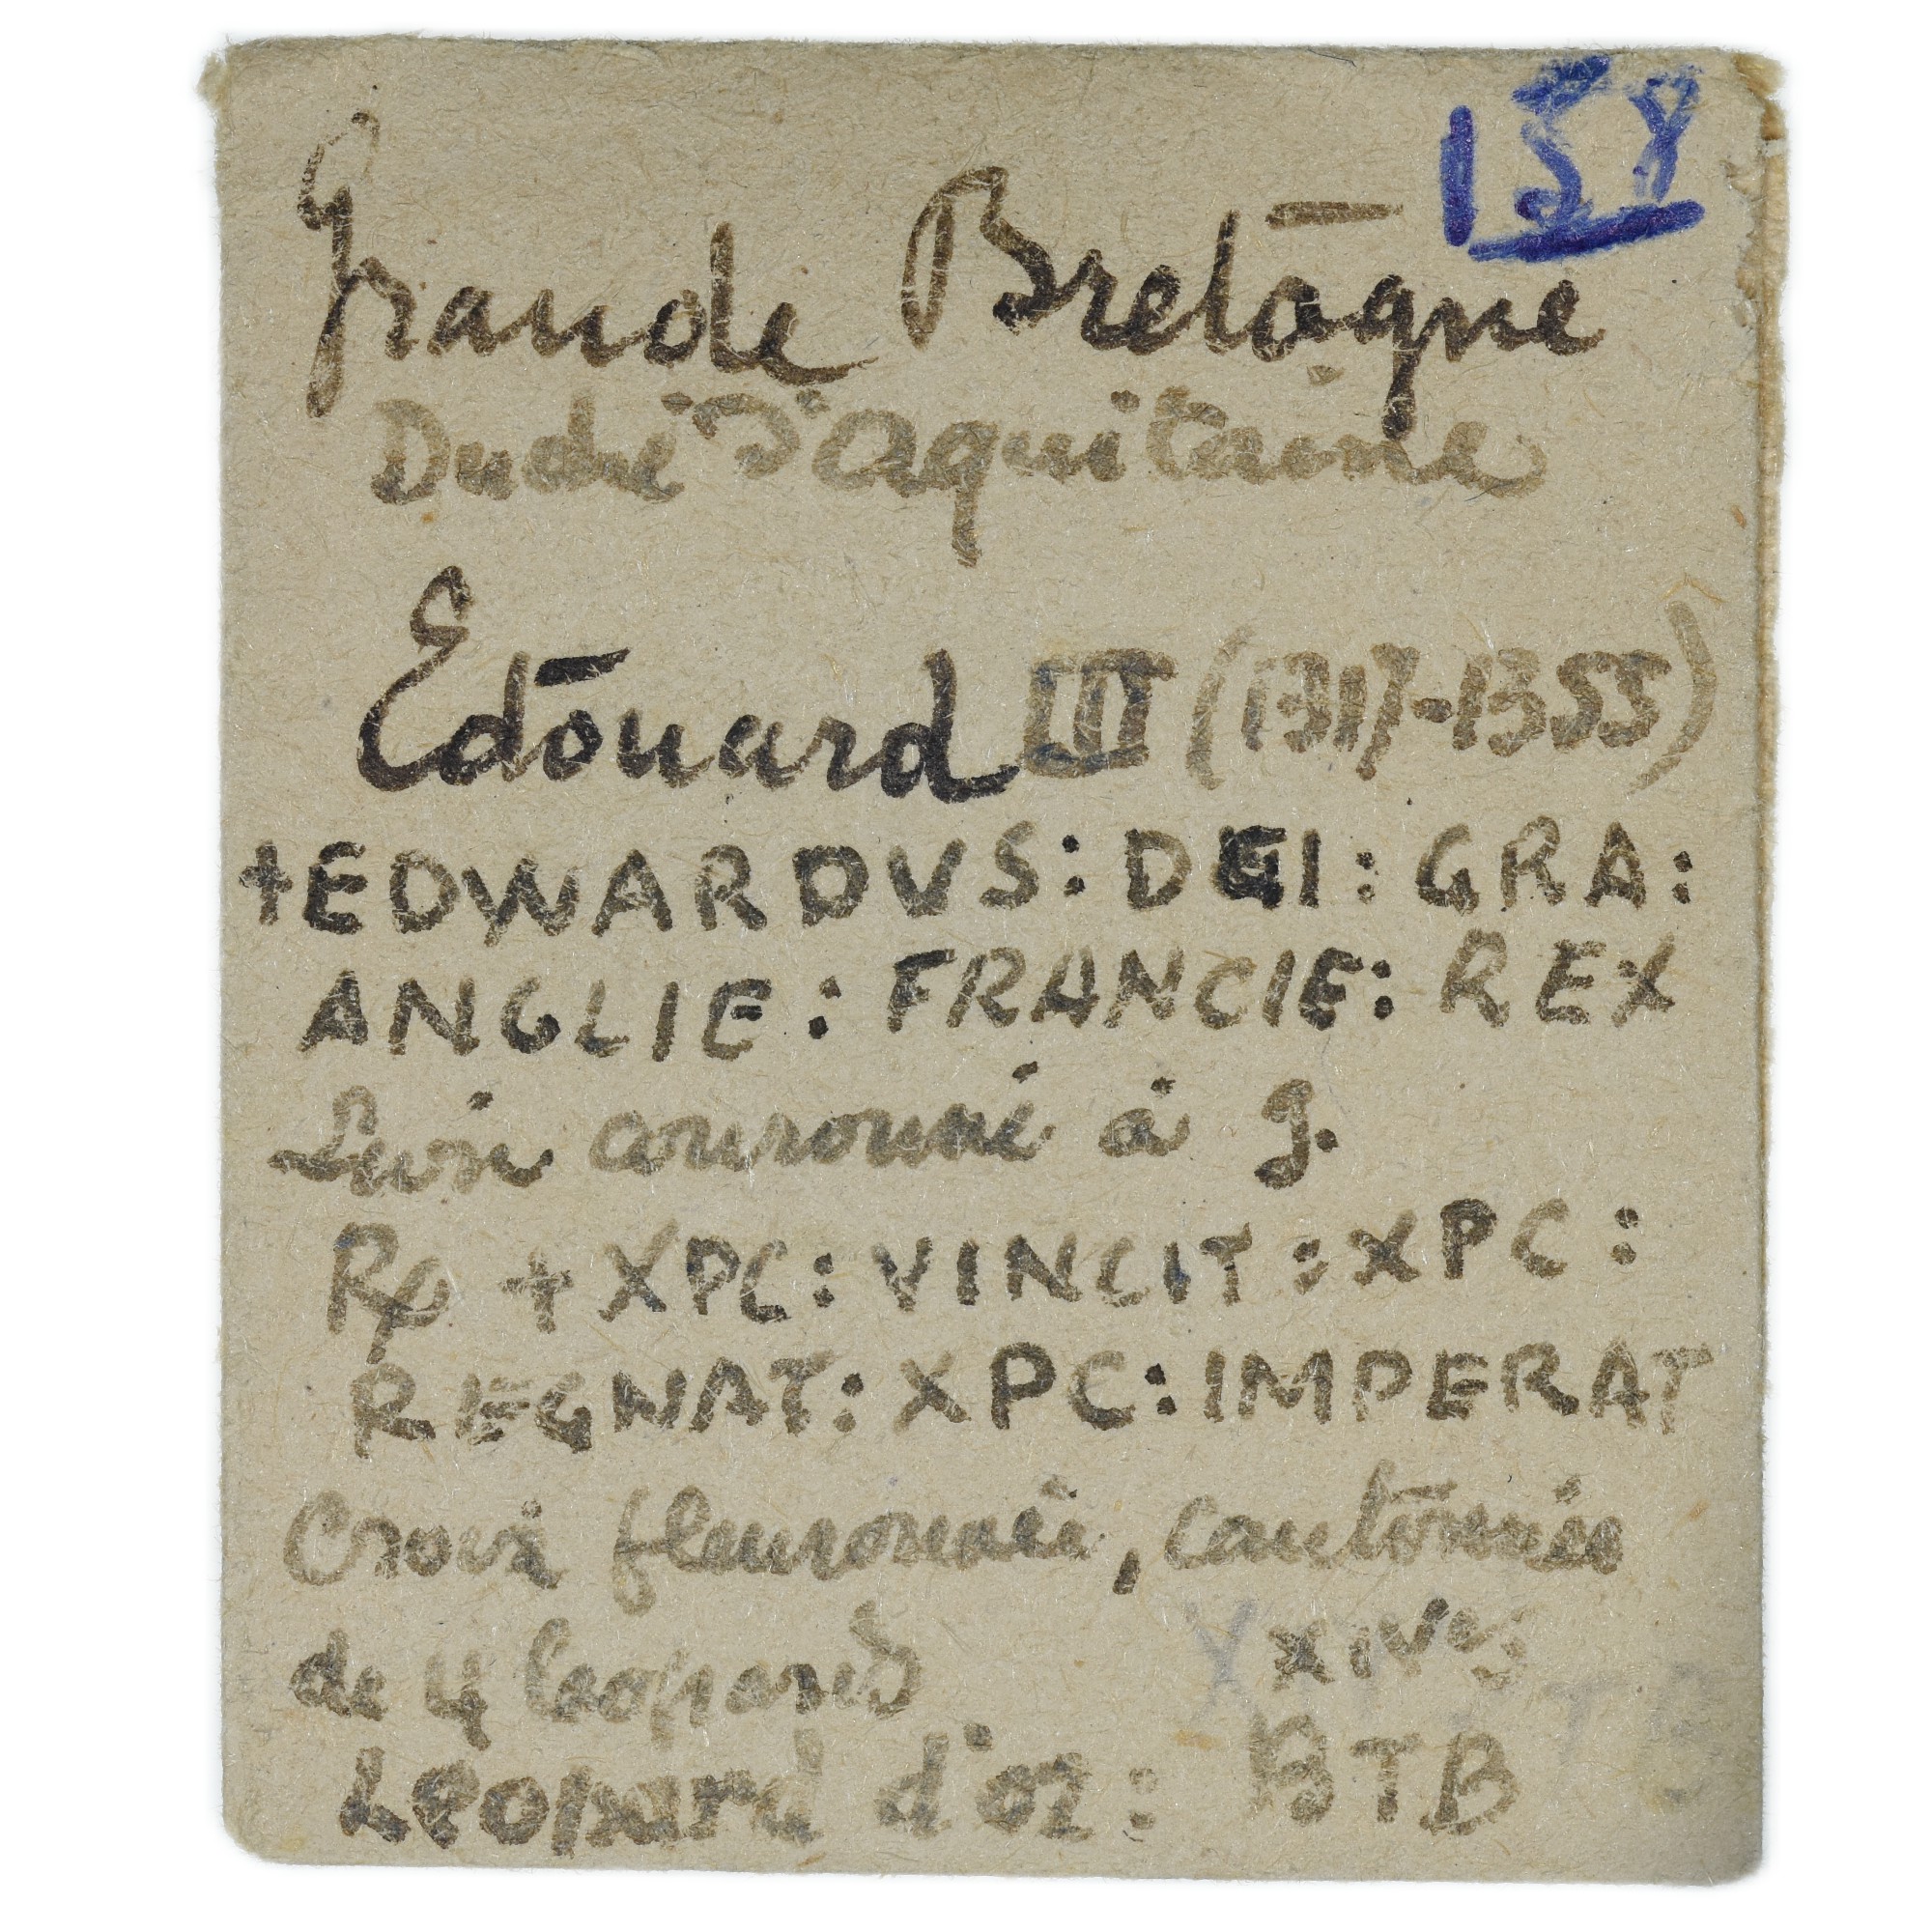 158
Grande Bretagne
Duché d'Aquitaine
Edouard III (1317-1355)
+EDWARDVS: DEI: GRA:
ANGLIE: FRANCIE: REX
couronné à g.
R/ + XPC: VINCIT: XPC:
REGNAT: XPC: IMPERAT
Croix fleuronnée, cantonnée
de 4 leopards XIVes
Léopard d'or: BTB